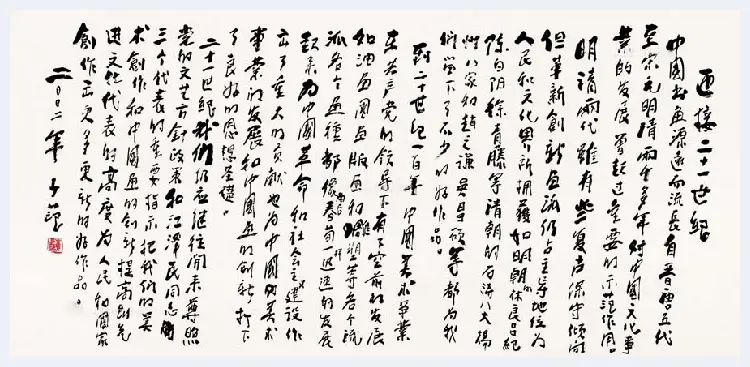 迎接二十一世紀
中國书画源远而流長自晋唐五代
至宋元明清两千多年对中國文化事
業的发展曾起过重要的示范作用。
明清兩代雖有些复古保守倾向
但革新創新画派仍占主导地位为
人民和文化界所拥護如明朝
陈白阳徐青藤等清朝的石涛八大揚
州八家如赵之谦吴昌硕等都为我
们留下了不少的好作品。
到二十世纪一百年中國美术事業
在共产党的领导下有了空前的发展
如油画國画版画和雕塑等各个流
派各个画種都像雨后春筍迅速的发展
起来为中國革命和社会主义建设作
出了重大的貢献也为中國的美术
事業的发展和中國画的創新打下
了良好的思想基礎。
二十一世紀我们仍应继往開来遵照
党的文艺方針政策和江泽民同志
三个代表的重要指示把我们的美
术創作和中國画的創新提高到先
进文化代表的高度为人民和國家
創作出更多更新的好作品。
二〇〇二年